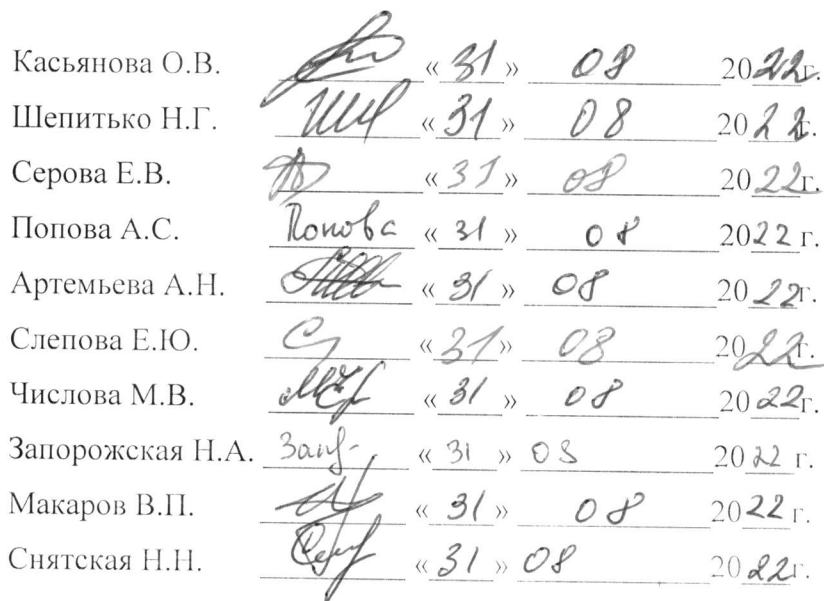 Касьянова О.В. « 31 » 08 2022г.
Шепитько Н.Г. « 31 » 08 2022г.
Серова Е.В. « 31 » 08 2022г.
Попова А.С. Попова « 31 » 08 2022 г.
Артемьева А.Н. « 31 » 08 2022г.
Слепова Е.Ю. « 31 » 08 2022г.
Числова М.В. « 31 » 08 2022г.
Запорожская Н.А. « 31 » 08 2022 г.
Макаров В.П. « 31 » 08 2022 г.
Снятская Н.Н. « 31 » 08 2022г.